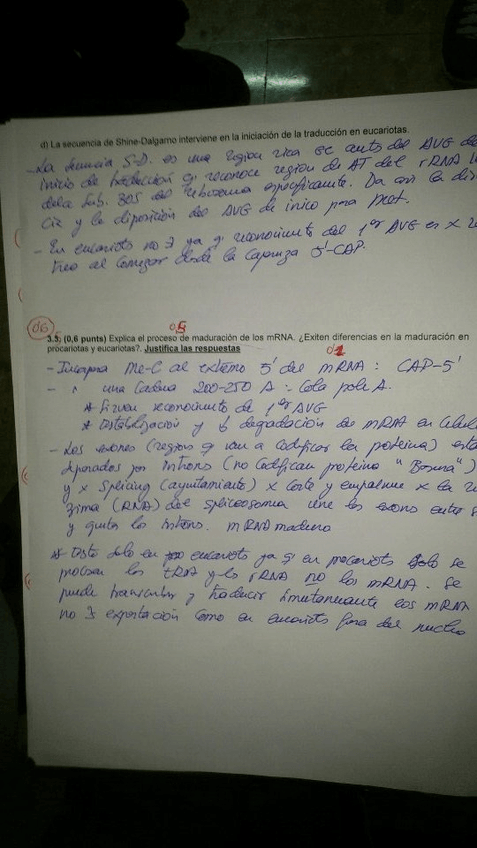 d) La secuencia de Shine-Dalgarno interviene en la iniciación de la traducción en eucariotas.
- La S-D. es una region rica antes del AUG de
inicio de traducción q reconoce region de AT del rRNA
de la sub. 30S del ribosoma especificamente. Da con la
y la disposición del AUG de inicio para Met.
- En eucariota no ∃ ya q reconocimiento del 1er AUG es x
al comenzar desde la Caperuza 5'-CAP.
06
05
3.5) (0,6 punts) Explica el proceso de maduración de los mRNA. ¿Exiten diferencias en la maduración en
procariotas y eucariotas?. Justifica las respuestas
01
- Incorpora Me-G al extremo 5' del mRNA : CAP-5'
- " una Cadena 200-250 A = Cola poli A.
* Sirven reconocimiento de 1er AUG
* Estabilización y degradación de mRNA en
- Los exones (region q van a codificar la proteina)
separados por intrones (no Codifican proteina "Basura")
y x Splicing (ayustamiento) x corte y empalme x la
zima (RNA) del spliceosoma une los exones entre
y quita los intrones. mRNA maduro
* Esto solo en eucariota ya q en procariota solo se
procesan los tRNA y los rRNA no los mRNA. Se
puede transcribir y traducir simultaneamente los mRNA
no ∃ exportación como en eucariota fuera del nucleo